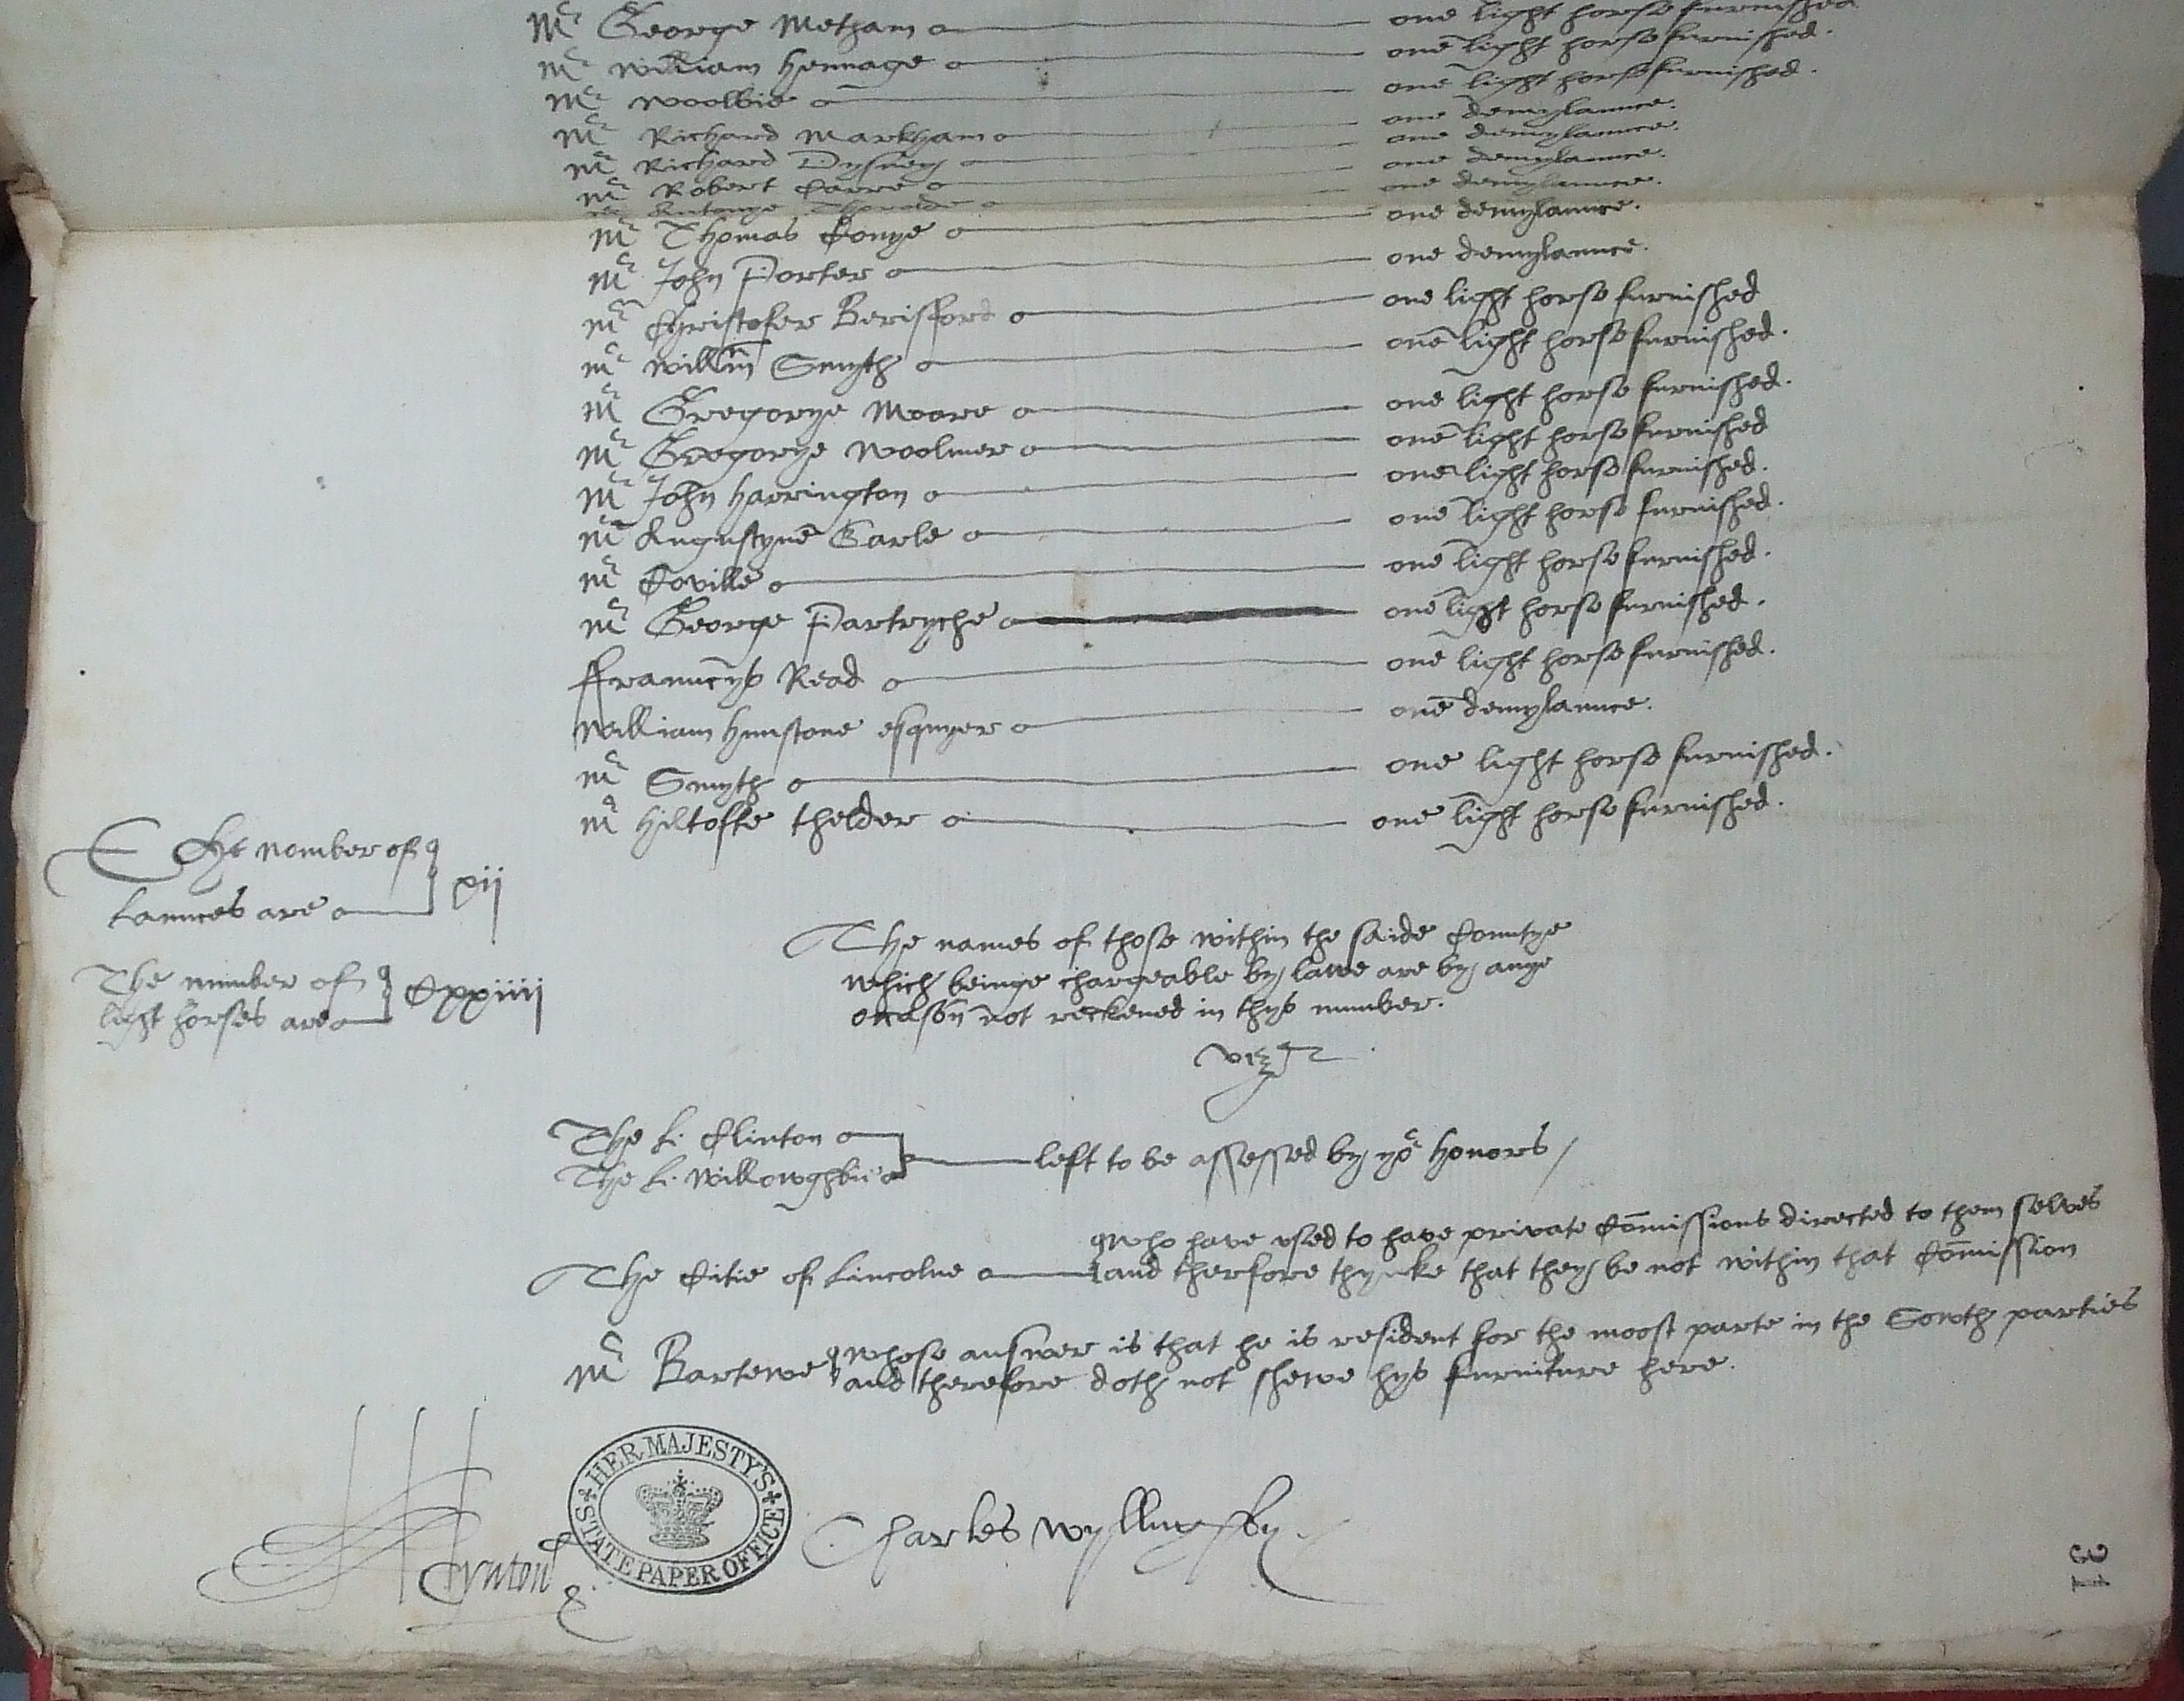 Mr George Metham one light horse furnished
Mr William Hennage one light horse furnished.
Mr Woolbie one light horse furnished.
Mr Richard Markham one demylaunce.
Mr Richard Dysney one demylaunce.
Mr Robert Carre one demylaunce.
Mr Antonye one demylaunce.
Mr Thomas Conye one demylaunce.
Mr John Porter one demylaunce.
Mr Christofer Berisford one light horse furnished
Mr Willm Smyth one light horse furnished.
Mr Gregorye Moore one light horse furnished.
Mr Gregorye Woolmer one light horse furnished
Mr John Harrington one light horse furnished.
Mr Augustyne Earle one light horse furnished.
Mr Coville one light horse furnished.
Mr George Partryche one light horse furnished.
Ffrauncys Read one light horse furnished.
William Hunstone esquyer one demylaunce.
Mr Smyth one light horse furnished.
Mr Hiltofte thelder one light horse furnished.
The nomber of
Launces are xij
The number of
light horses are Cxxiiij
The names of those within the saide Countye
which beinge chargeable by lawe are by anye
occasion not reckened in thys number.
vizt
The L. Clinton
The L. Willowghbie left to be assessed by yor Honors /
The Citie of Lincolne who have vsed to have private Comissions directed to them selves
and therfore thyncke that they be not within that Comission
Mr Bartewe whose answer is that he is resident for the moost parte in the Sowth parties
and therefore doth not shewe hys furniture here.
H Clynton
HER MAJESTY'S
STATE PAPER OFFICE
Charles Wyllughby
31